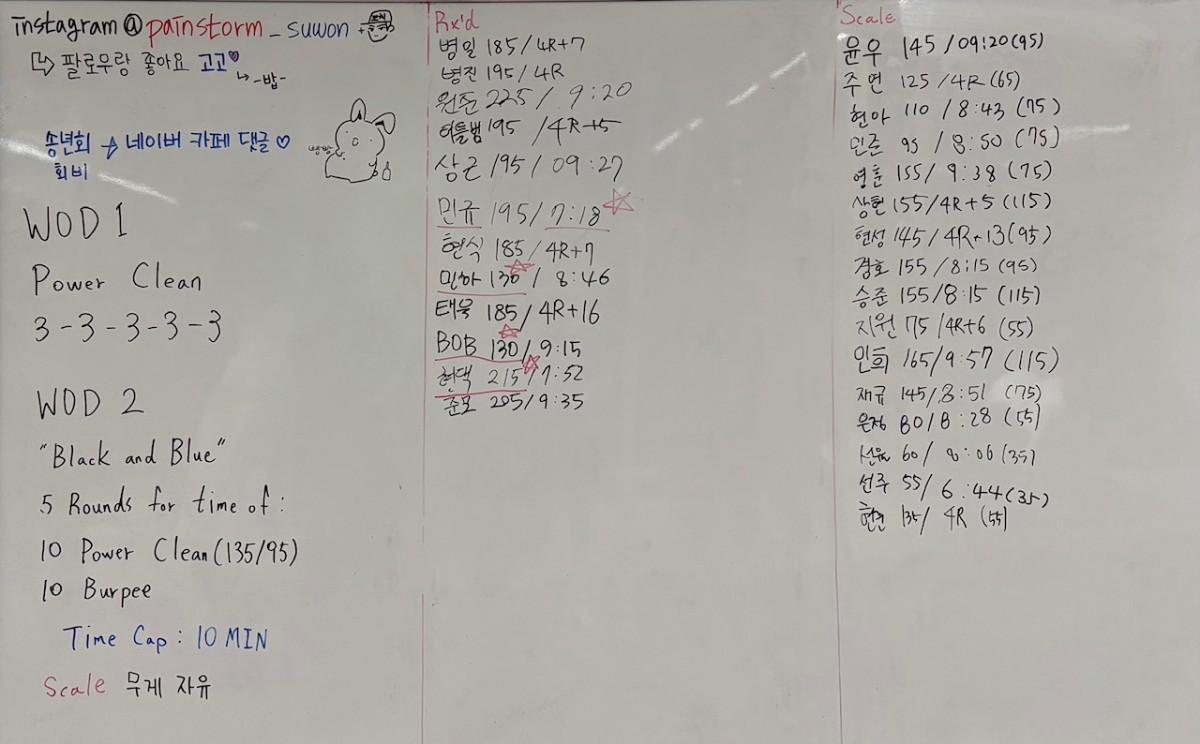 instagram@painstorm_suwon
↳ 팔로우랑 좋아요 고고♥
↳ -밥-
송년회 → 네이버 카페 댓글♡
회비
빵빵
WOD 1
Power Clean
3-3-3-3-3
WOD 2
"Black and Blue"
5 Rounds for time of :
10 Power Clean (135/95)
10 Burpee
Time Cap : 10 MIN
Scale 무게 자유
Rx'd
병일 185/4R+7
병진 195/4R
원준 225/9:20
터틀범 195/4R+5
상근 195/09:27
민규 195/7:18
현식 185/4R+7
민하 130/8:46
태울 185/4R+16
BOB 130/9:15
현택 215/7:52
준모 205/9:35
Scale
윤우 145/09:20(95)
주연 125/4R(65)
현아 110/8:43(75)
민준 95/8:50(75)
영훈 155/9:38(75)
상현 155/4R+5(115)
현성 145/4R+13(95)
경호 155/8:15(95)
승준 155/8:15(115)
지원 75/4R+6(55)
민희 165/9:57(115)
재규 145/8:51(75)
은정 80/8:28(55)
60/8:06(35)
선주 55/6:44(35)
135/4R(55)